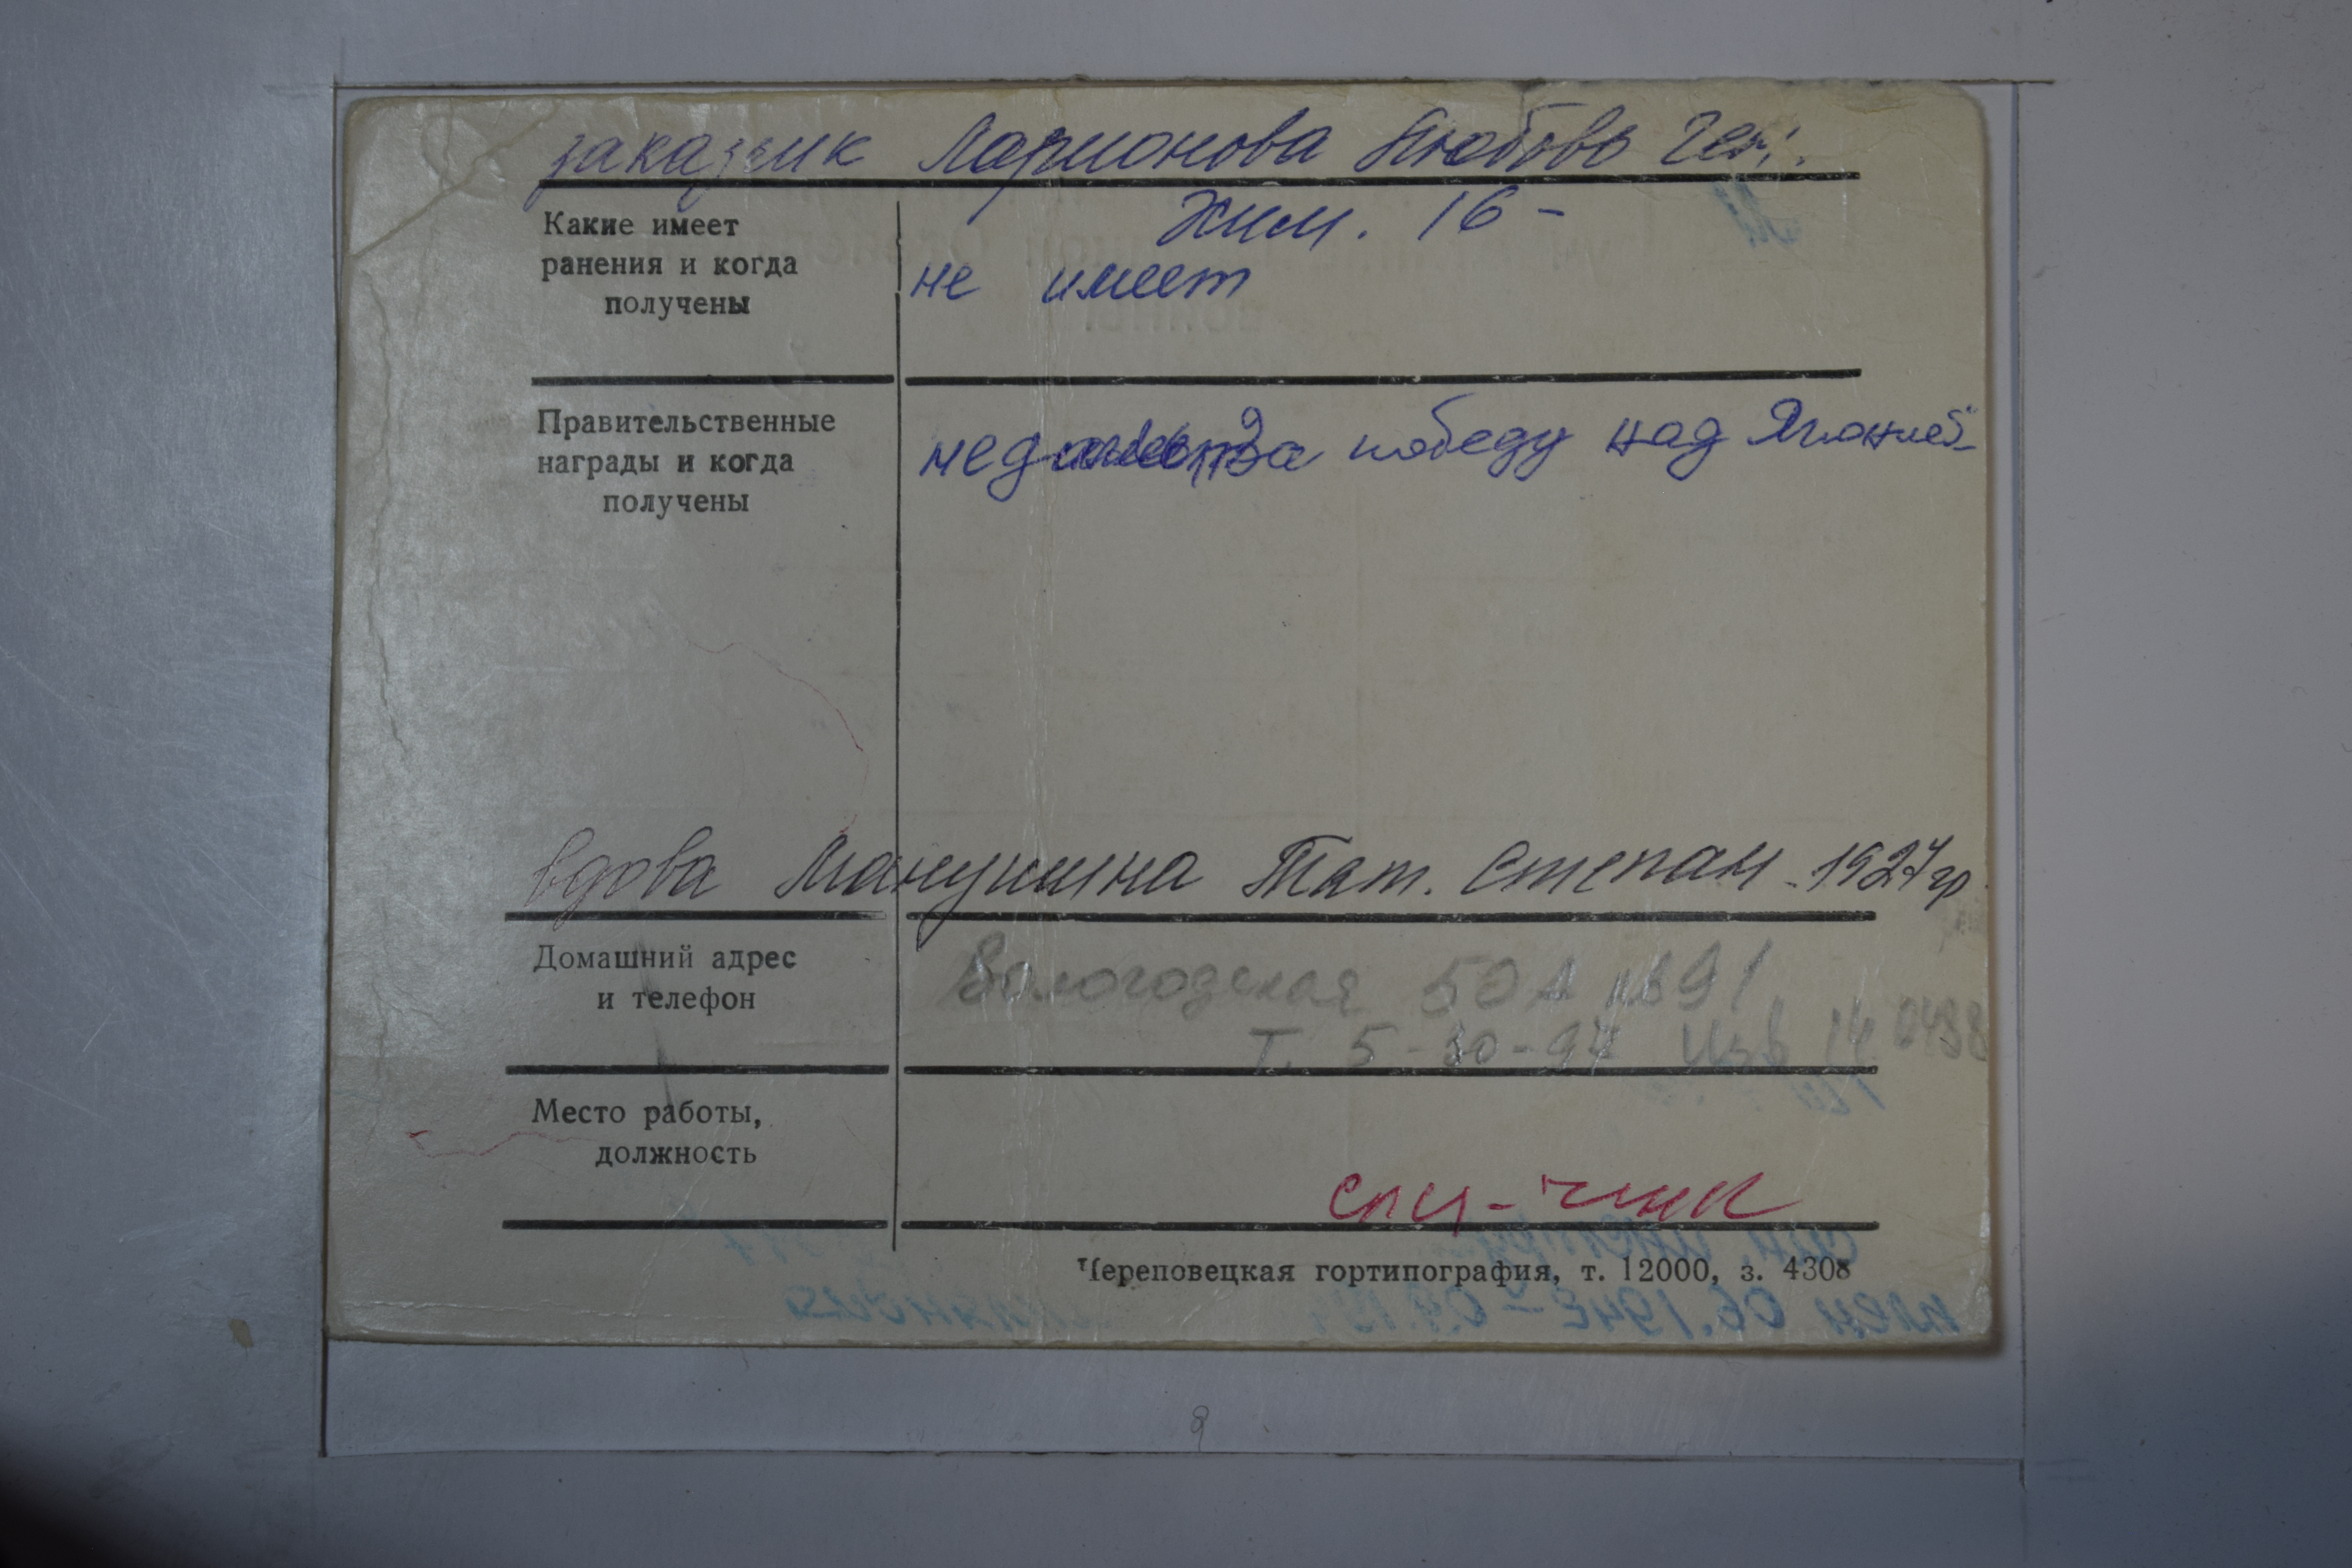 заказчик Ларионова Любовь Ген.
Жил. 16-
Какие имеет
ранения и когда
получены
не имеет
Правительственные
награды и когда
получены
за победу над Японией
вдова Манушина Тат. Степан. 1927 гр
Домашний адрес
и телефон
Вологодская 50А кв 91
т. 5-30-97 Изв 14 0498
Место работы,
должность
спц-чик
Череповецкая гортипография, т. 12000, з. 4308
9